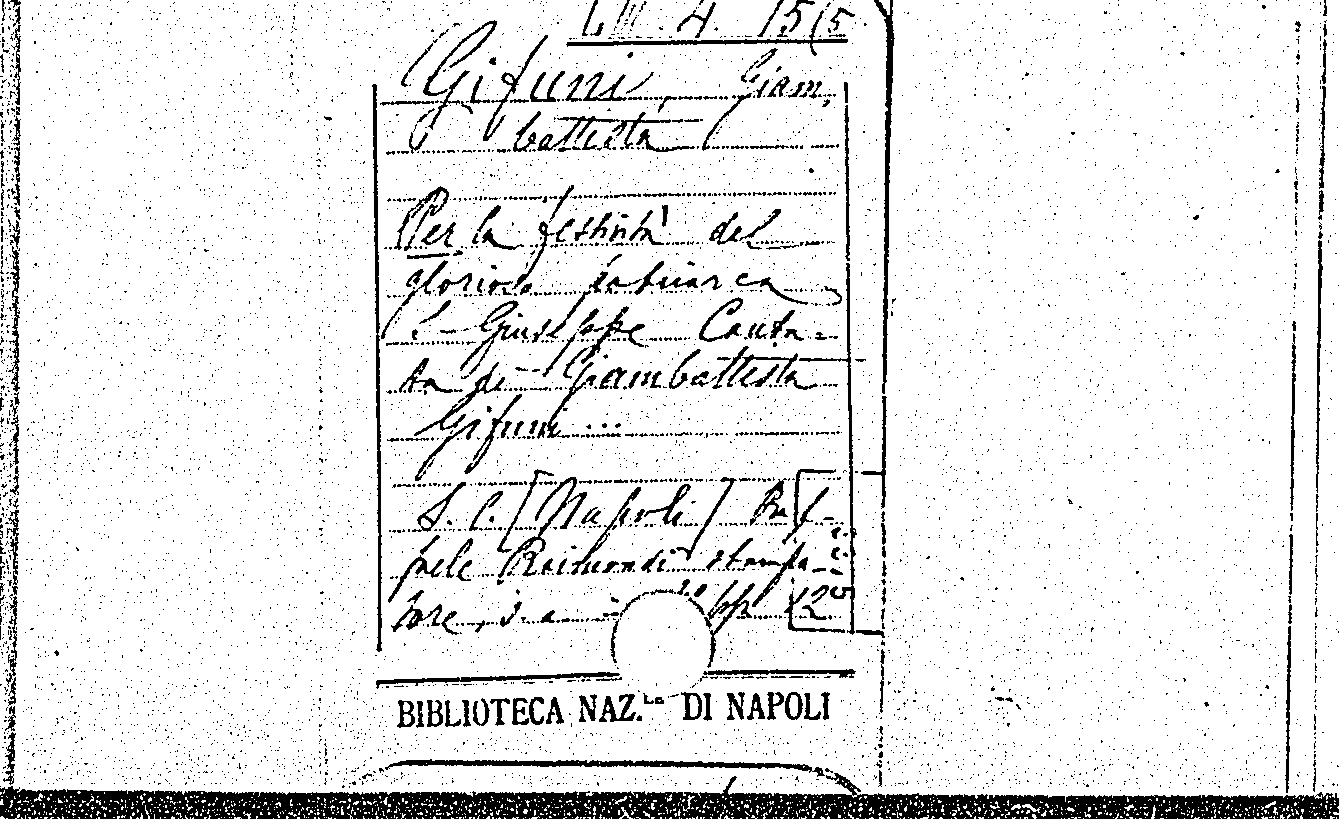 4. 15(5
Gifuni, Giam,
battista
Per la festività del
glorioso patriarca
S. Giuseppe Canta=
ta di Giambattista
Gifuni ...
S. C. [Napoli] Raf-
faele Raimondi stampa-
tore, s. a. in pp 12
BIBLIOTECA NAZ.LE DI NAPOLI